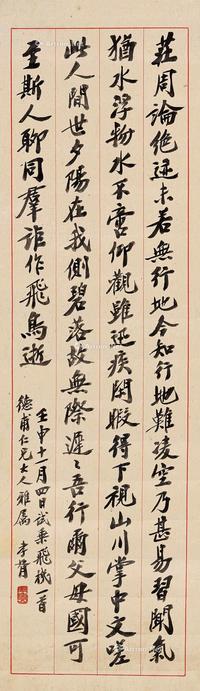 莊周論絕迹未若無行地今知行地難凌空乃甚易習聞氣
猶水浮物水不啻仰觀雖迅疾閒暇得下視山川掌中文嗟
此人間世夕陽在我側碧落故無際遲〻吾行爾父母國可
至斯人聊同羣詎作飛鳥逝
壬申十一月四日試乘飛機一首
德甫仁兄大人雅屬 孝胥